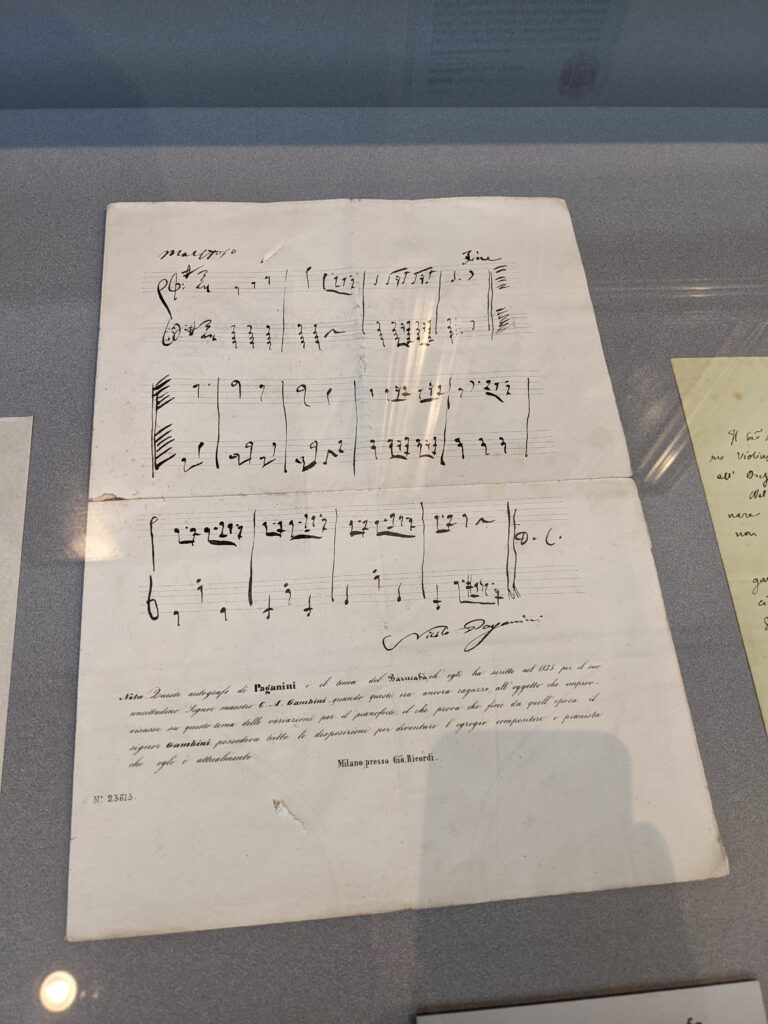 Maestoso
Fine
D. C.
Nicolò Paganini
Nota. Questo autografo di Paganini è il tema del Barucabà, ch' egli ha scritto nel 1835 per il suo
concittadino Signor maestro C. A. Gambini, quando questi era ancora ragazzo, all' oggetto che improv-
visasse su questo tema delle variazioni per il pianoforte, il che prova che fino da quell' epoca il
signor Gambini possedeva tutte le disposizioni per diventare l' egregio compositore e pianista
che egli è attualmente.
Milano, presso Gio. Ricordi.
N.º 23615.
Violin
all'
non